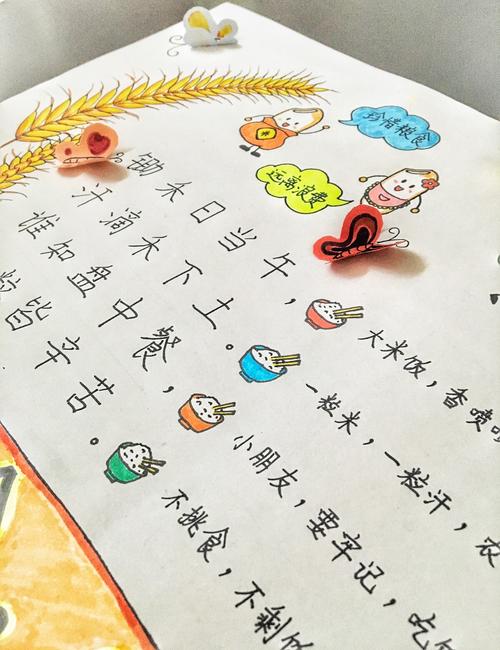 珍惜粮食
远离浪费
锄禾日当午，
汗滴禾下土。
谁知盘中餐，
粒皆辛苦。
大米饭，香喷
一粒米，一粒汗，农
小朋友，要牢记，吃
不挑食，不剩